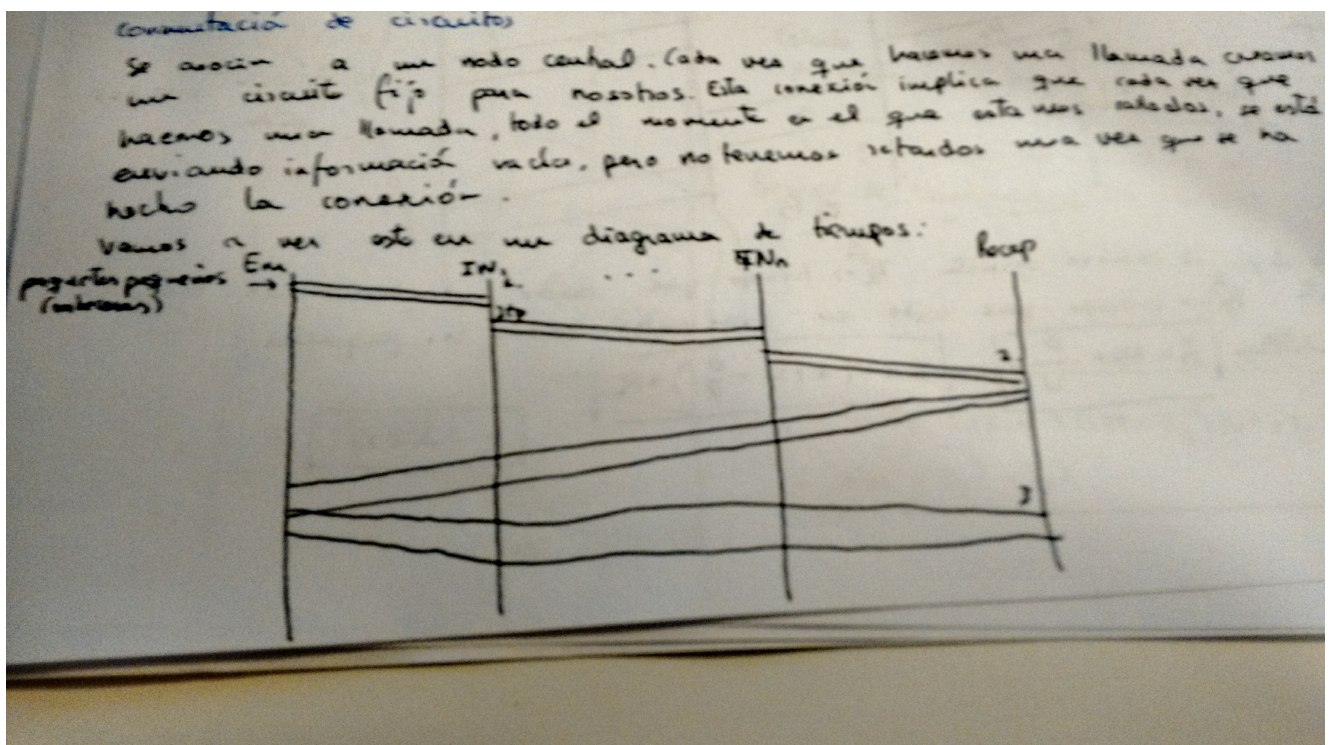 conmutació de circuitos
Se asocia a un nodo central. Cada vez que hacemos una llamada creamos
un circuito fijo para nosotros. Esta conexión implica que cada vez que
hacemos una llamada, todo el momento en el que estamos callados, se está
enviando información vacía, pero no tenemos retardos una vez que se ha
hecho la conexión.
Vamos a ver esto en un diagrama de tiempos:
Em IN1 ... INn Recep
paquetes pequeños →
2
3